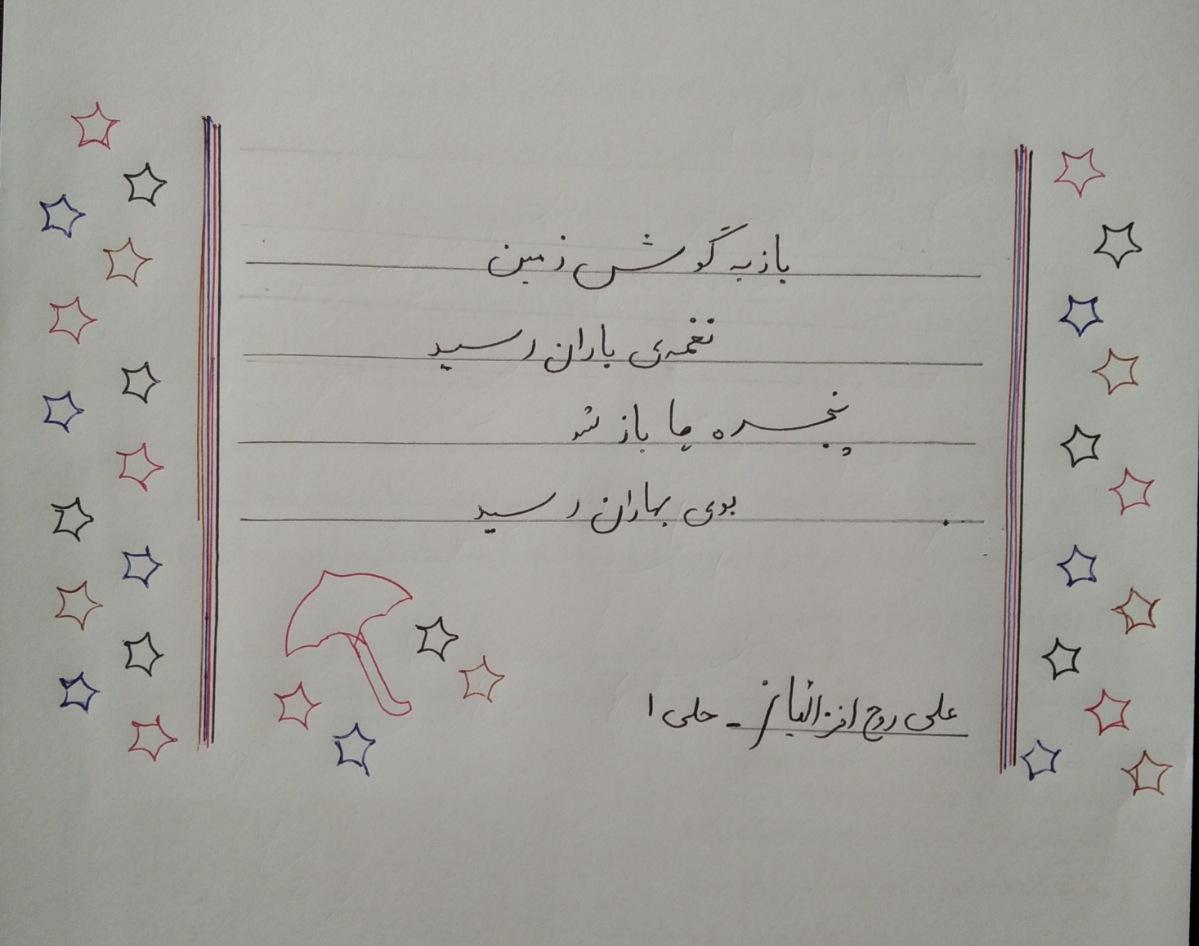 باز به گوش زمین
نغمه‌ی باران رسید
پنجره ها باز شد
بوی بهاران رسید
علی روح افز - حلی ۱